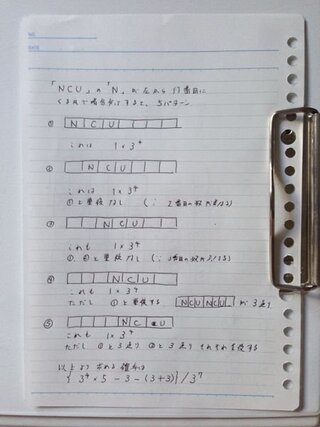 NO.
DATE
「NCU」の「N」が左から何番目に
くるかで場合分けすると、5パターン
① N C U
これは 1×3⁴
② N C U
これは 1×3⁴
①と重複なし (∵ 2番目の
③ N C U
これも 1×3⁴
①, ②と重複なし (∵ 3番目の
④ N C U
これも 1×3⁴
ただし ①と重複する NCUNCU が 3通り
⑤ N C U
これも 1×3⁴
ただし ①と3通り ②と3通り それぞれ重複する
以上より 求める確率は
{ 3⁴×5 - 3 - (3+3) } / 3⁷